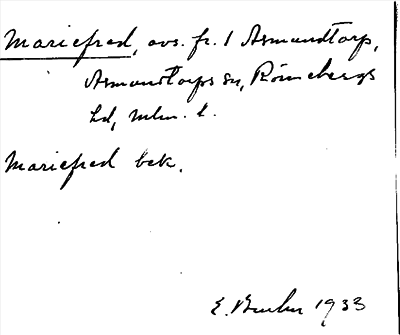 Mariefred, avs. fr. 1 Asmundtorp,
Asmundtorps sn, Rönnebergs
hd, Mlm. l.
Mariefred bek.
E. 1933